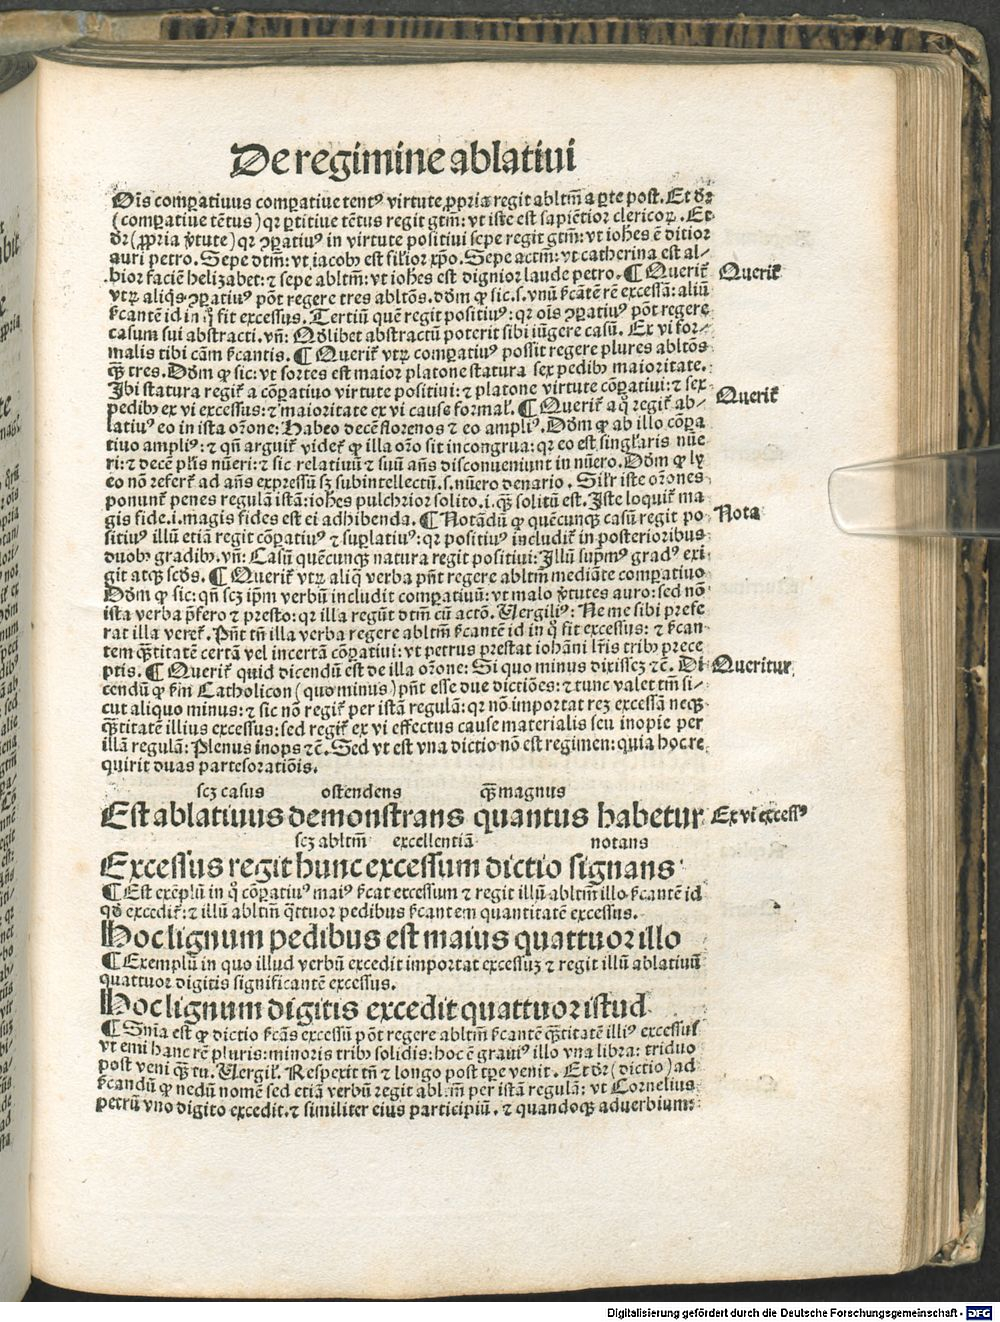 De regimine ablatiui
Ois comꝑatiuus comꝑatiue tentꝰ virtute ꝓpria regit abltm̄ a ꝑte post. Et dr̄
(comꝑatiue tētus) qr ꝑtitiue tētus regit gtm̄: vt iste est sapiētior clericoꝝ. Et
dr̄ (ꝓpria v̓tute) qr ꝯꝑatiuꝰ in virtute positiui sepe regit gtm̄: vt ioh̄es ē ditior
auri petro. Sepe dtm̄: vt iacobꝰ est filior xp̄o. Sepe actm̄: vt catherina est al⸗
bior faciē helizabet: ⁊ sepe abltm̄: vt ioh̄es est dignior laude petro. ¶ Querit̄
Querit̄
vtꝝ aliq̄s ꝯꝑatiuꝰ pōt regere tres abltōs. dōm ꝙ sic. s. vnū s̄cātē rē excessā: aliū
s̄cantē id in q̊ fit excessus. Tertiū quē regit positiuꝰ: qr ois ꝯꝑatiuꝰ pōt regere
casum sui abstracti. vn̄: Qd̓libet abstractū poterit sibi iūgere casū. Ex vi for⸗
malis tibi cām s̄cantis. ¶ Querit̄ vtꝝ comꝑatiuꝰ possit regere plures abltōs
ꝙ̄ tres. Dōm ꝙ sic: vt sortes est maior platone statura sex pedibꝰ maioritate.
Ibi statura regit̄ a cōꝑatiuo virtute positiui: ⁊ platone virtute cōꝑatiui: ⁊ sex
pedibꝰ ex vi excessus: ⁊ maioritate ex vi cause formal̓. ¶ Querit̄ a q̊ regit̄ ab⸗
Querit̄
latiuꝰ eo in ista or̄one: Habeo decē florenos ⁊ eo ampliꝰ. Dōm ꝙ ab illo cōꝑa
tiuo ampliꝰ: ⁊ qn̄ arguit̄ videt̄ ꝙ illa or̄o sit incongrua: qr eo est singl̓aris nūe
ri: ⁊ decē pl̓is nūeri: ⁊ sic relatiuū ⁊ suū an̄s disconueniunt in nūero. Dōm ꝙ lꝫ
eo nō refert̄ ad an̄s expressū sꝫ subintellectū. s. nūero denario. Sil̓r iste or̄ones
ponunt̄ penes regulā istā: ioh̄es pulchrior solito. i. ꝙ̄ solitū est. Iste loquit̄ ma
gis fide. i. magis fides est ei adhibenda. ¶ Notādū ꝙ quēcunqꝫ casū regit po
Nota
sitiuꝰ illū etiā regit cōꝑatiuꝰ ⁊ suꝑlatiuꝰ: qr positiuꝰ includit̄ in posterioribus
duobꝰ gradibꝰ. vn̄: Casū quēcunqꝫ natura regit positiui: Illū supm̄ꝰ gradꝰ exi
git atqꝫ scd̓s. ¶ Querit̄ vtꝝ aliq̄ verba pn̄t regere abltm̄ mediāte comꝑatiuo
Dōm ꝙ sic: qn̄ scꝫ ip̄m verbū includit comꝑatiuū: vt malo v̓tutes auro: sed nō
ista verba p̄fero ⁊ presto: qr illa regūt dtm̄ cū actō. Vergiliꝰ: Ne me sibi prefe
rat illa veret̄. Pn̄t tn̄ illa verba regere abltm̄ s̄cantē id in q̊ fit excessus: ⁊ s̄can
tem ꝙ̄titatē certā vel incertā cōꝑatiui: vt petrus prestat iohāni l̓ris tribꝰ prece
ptis. ¶ Querit̄ quid dicendū est de illa or̄one: Si quo minus dixissꝫ ⁊c̄. Di
Queritur
cendū ꝙ s̄m Catholicon (quo minus) pn̄t esse due dictiōes: ⁊ tunc valet tm̄ si⸗
cut aliquo minus: ⁊ sic nō regit̄ per istā regulā: qr nō importat reꝫ excessā neqꝫ
ꝙ̄titatē illius excessus: sed regit̄ ex vi effectus cause materialis seu inopie per
illā regulā: Plenus inops ⁊c̄. Sed vt est vna dictio nō est regimen: quia hoc re
quirit duas partes oratiōis.
scꝫ casus ostendens ꝙ̄ magnus
Est ablatiuus demonstrans quantus habetur
Ex vi excessꝰ
scꝫ abltm̄ excellentiā notans
Excessus regit hunc excessum dictio signans
¶ Est exēplū in q̊ cōꝑatiuꝰ maiꝰ s̄cat excessum ⁊ regit illū abltm̄ illo s̄cantē id
qd̓ excedit̄: ⁊ illū abltm̄ q̄ttuor pedibus s̄cantem quantitatē excessus.
Hoc lignum pedibus est maius quattuor illo
¶ Exemplū in quo illud verbū excedit importat excessuꝫ ⁊ regit illū ablatiuū
quattuor digitis significantē excessus.
Hoc lignum digitis excedit quattuor istud
¶ Snīa est ꝙ dictio s̄cās excessū pōt regere abltm̄ s̄cantē ꝙ̄titatē illiꝰ excessus
vt emi hanc rē pluris: minoris tribꝰ solidis: hoc ē grauiꝰ illo vna libra: triduo
post veni ꝙ̄ tu. Vergil̓. Respexit tn̄ ⁊ longo post tꝑe venit. Et dr̄ (dictio) ad
s̄candū ꝙ nedū nomē sed etiā verbū regit abltm̄ per istā regulā: vt Cornelius
petrū vno digito excedit. ⁊ similiter eius participiū. ⁊ quandoqꝫ aduerbium:
Digitalisierung gefördert durch die Deutsche Forschungsgemeinschaft - DFG